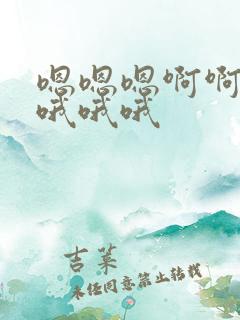 嗯嗯嗯啊啊
哦哦哦
吉菜
未经同意禁止转载